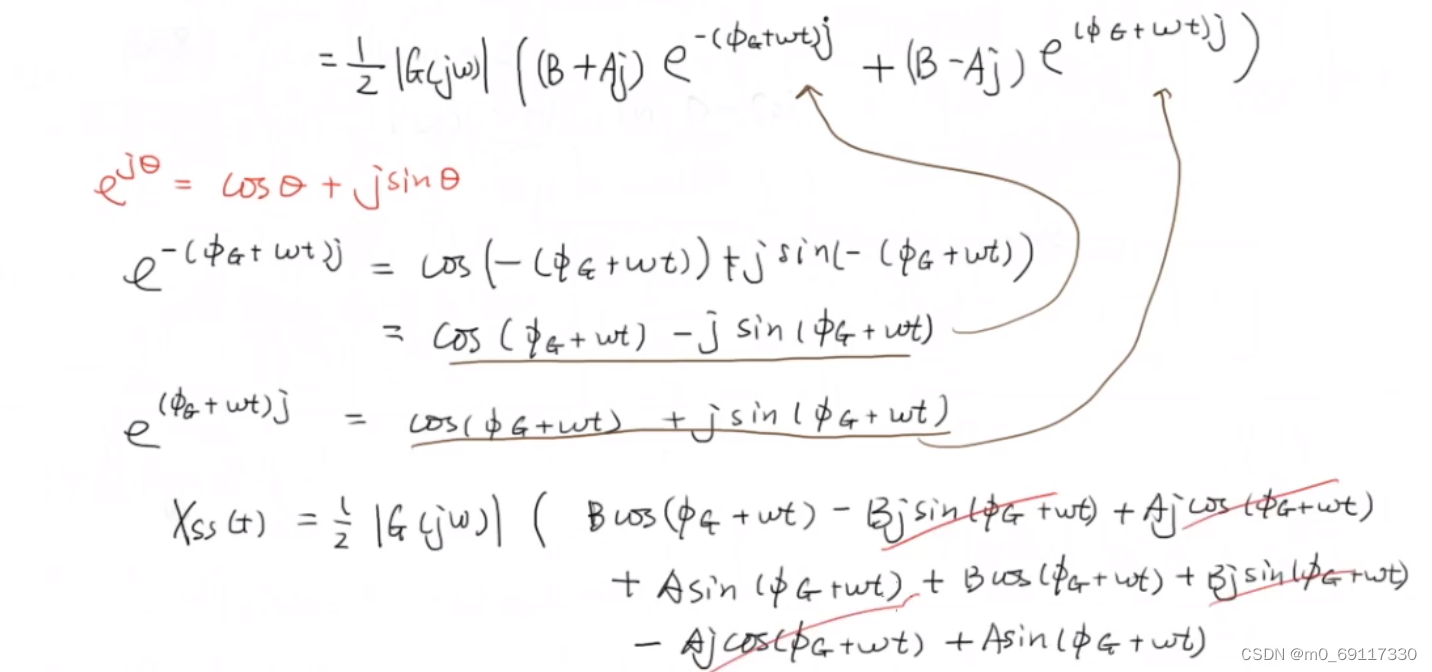 = 1/2 |G(jω)| ((B+Aj) e^{-(ϕ_G+ωt)j} + (B-Aj) e^{(ϕ_G+ωt)j})
e^{jθ} = cosθ + jsinθ
e^{-(ϕ_G+ωt)j} = cos(-(ϕ_G+ωt)) + j sin(-(ϕ_G+ωt))
= cos(ϕ_G+ωt) - j sin(ϕ_G+ωt)
e^{(ϕ_G+ωt)j} = cos(ϕ_G+ωt) + j sin(ϕ_G+ωt)
X_{ss}(t) = 1/2 |G(jω)| ( B cos(ϕ_G+ωt) - Bj sin(ϕ_G+ωt) + Aj cos(ϕ_G+ωt)
+ A sin(ϕ_G+ωt) + B cos(ϕ_G+ωt) + Bj sin(ϕ_G+ωt)
- Aj cos(ϕ_G+ωt) + A sin(ϕ_G+ωt)
CSDN @m0_69117330